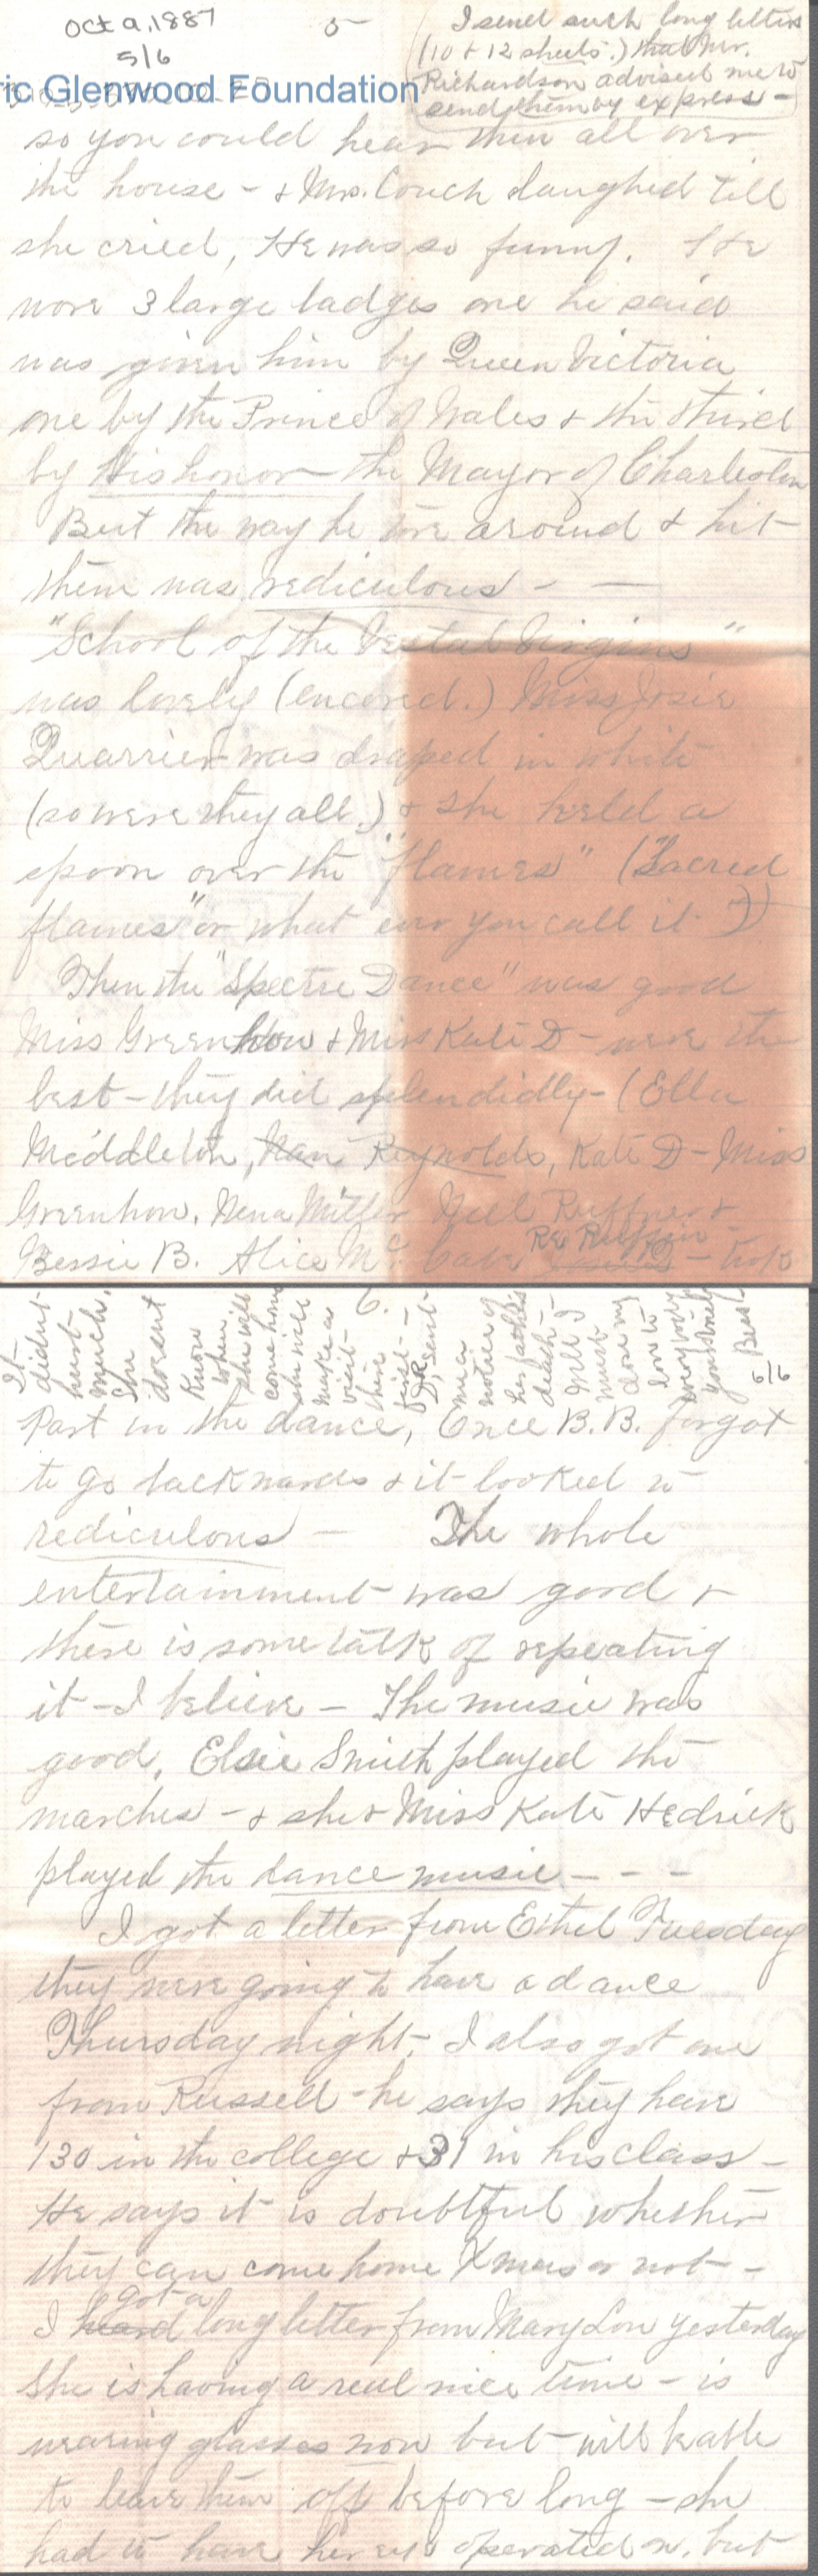 Oct 9, 1887
5/6
5
I send such long letters
(10 & 12 sheets.) that Mr.
Richardson advised me to
send them by express-
ric Glenwood Foundation
so you could hear them all over
the house - & Mrs. Couch laughed till
she cried, He was so funny. He
wore 3 large badges one he said
was given him by Queen Victoria
one by the Prince of Wales & the third
by His honor the Mayor of Charleston
But the way he tore around & hit
them was rediculous - —
"School of the Vestal Virgins"
was lovely (encored.) Miss Josie
Quarrier was draped in white
(so were they all.) & she held a
spoon over the "flames" ("Sacred
flames" or what ever you call it.)
Then the "Spectre Dance" was good
Miss Greenhow & Miss Kate D- were the
best - they did splendidly - (Ella
Middleton, Nan Reynolds, Kate D - Miss
Greenhow. Nena Miller Nell Ruffner &
Bessie B. Alice McCabe - took
6.
It
didn't
hurt
much.
She
doesent
know
when
she will
come home
she will
make a
visit
first -
D.R. sent
me a
notice of
her father's
death -
Well I
must
close my
love to
everybody
yours truly
Bess
6/6
Part in the dance, Once B.B. forgot
to go backwards & it looked so
rediculous - The whole
entertainment was good &
there is some talk of repeating
it - I believe - The music was
good, Elsie Smith played the
marches - & she & Miss Kate Hedrick
played the dance music - - -
I got a letter from Ethel Tuesday
they were going to have a dance
Thursday night. I also got one
from Russell - he says they have
130 in the college & 31 in his class -
He says it is doubtful whether
they can come home Xmas or not -
got a
I heard long letter from Mary Lou yesterday
She is having a real nice time - is
wearing glasses now but will be able
to leave them off before long - she
had to have her eyes operated on, but